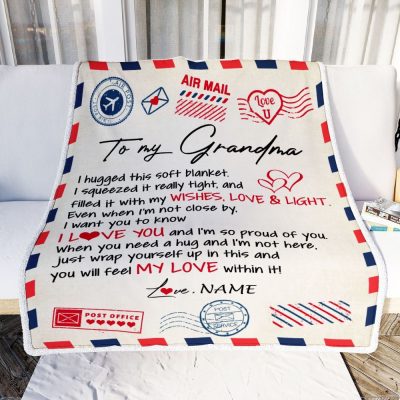 AIR MAIL
Love
U
To my Grandma
I hugged this soft blanket.
I squeezed it really tight, and
filled it with my WISHES, LOVE & LIGHT.
Even when I'm not close by.
I want you to know
I LOVE YOU and I'm so proud of you.
When you need a hug and I'm not here,
just wrap yourself up in this and
you will feel MY LOVE within it!
Love, NAME
POST OFFICE
POST
SERVICE